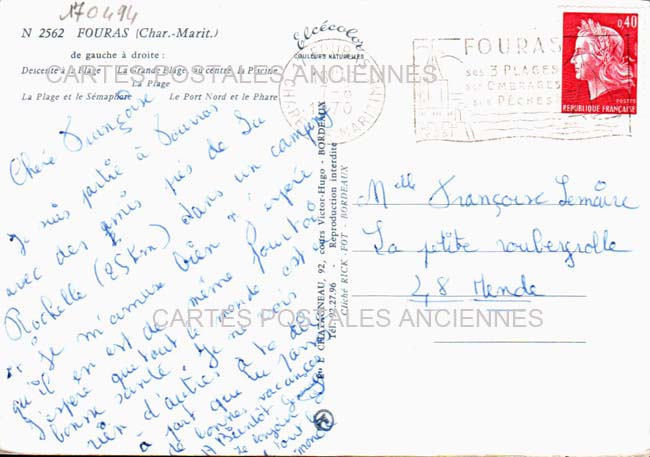 170494
N 2562 FOURAS (Char.-Marit.)
de gauche à droite :
Descente à la Plage La Grande Plage, au centre, la Piscine
La Plage
La Plage et le Sémaphore Le Port Nord et le Phare
Elcécolor
COULEURS NATURELLES
FOURAS
CHARENTE-MARITIME
FOURAS
ses 3 PLAGES
ses OMBRAGES
ses PÊCHES
0,40
POSTES
REPUBLIQUE FRANÇAISE
CARTES POSTALES ANCIENNES
Chère Françoise
Je suis partie à Fouras
avec des amis près de La
Rochelle (25 km) dans un camping
Je m'amuse bien j'espère
qu'il en est de même pour toi
J'espère que tout le monde est en
bonne santé. Je ne vois
rien d'autres à te dire
à part que tu passes
de bonnes vacances
A Bientôt
tout le
monde
CHATAGNEAU, 92, cours Victor-Hugo - BORDEAUX
Tél. 92.27.96 - Reproduction interdite
Cliché RICK FOT - BORDEAUX
Melle Françoise Lemaire
La petite roubeyrolle
48 Mende
CARTES POSTALES ANCIENNES